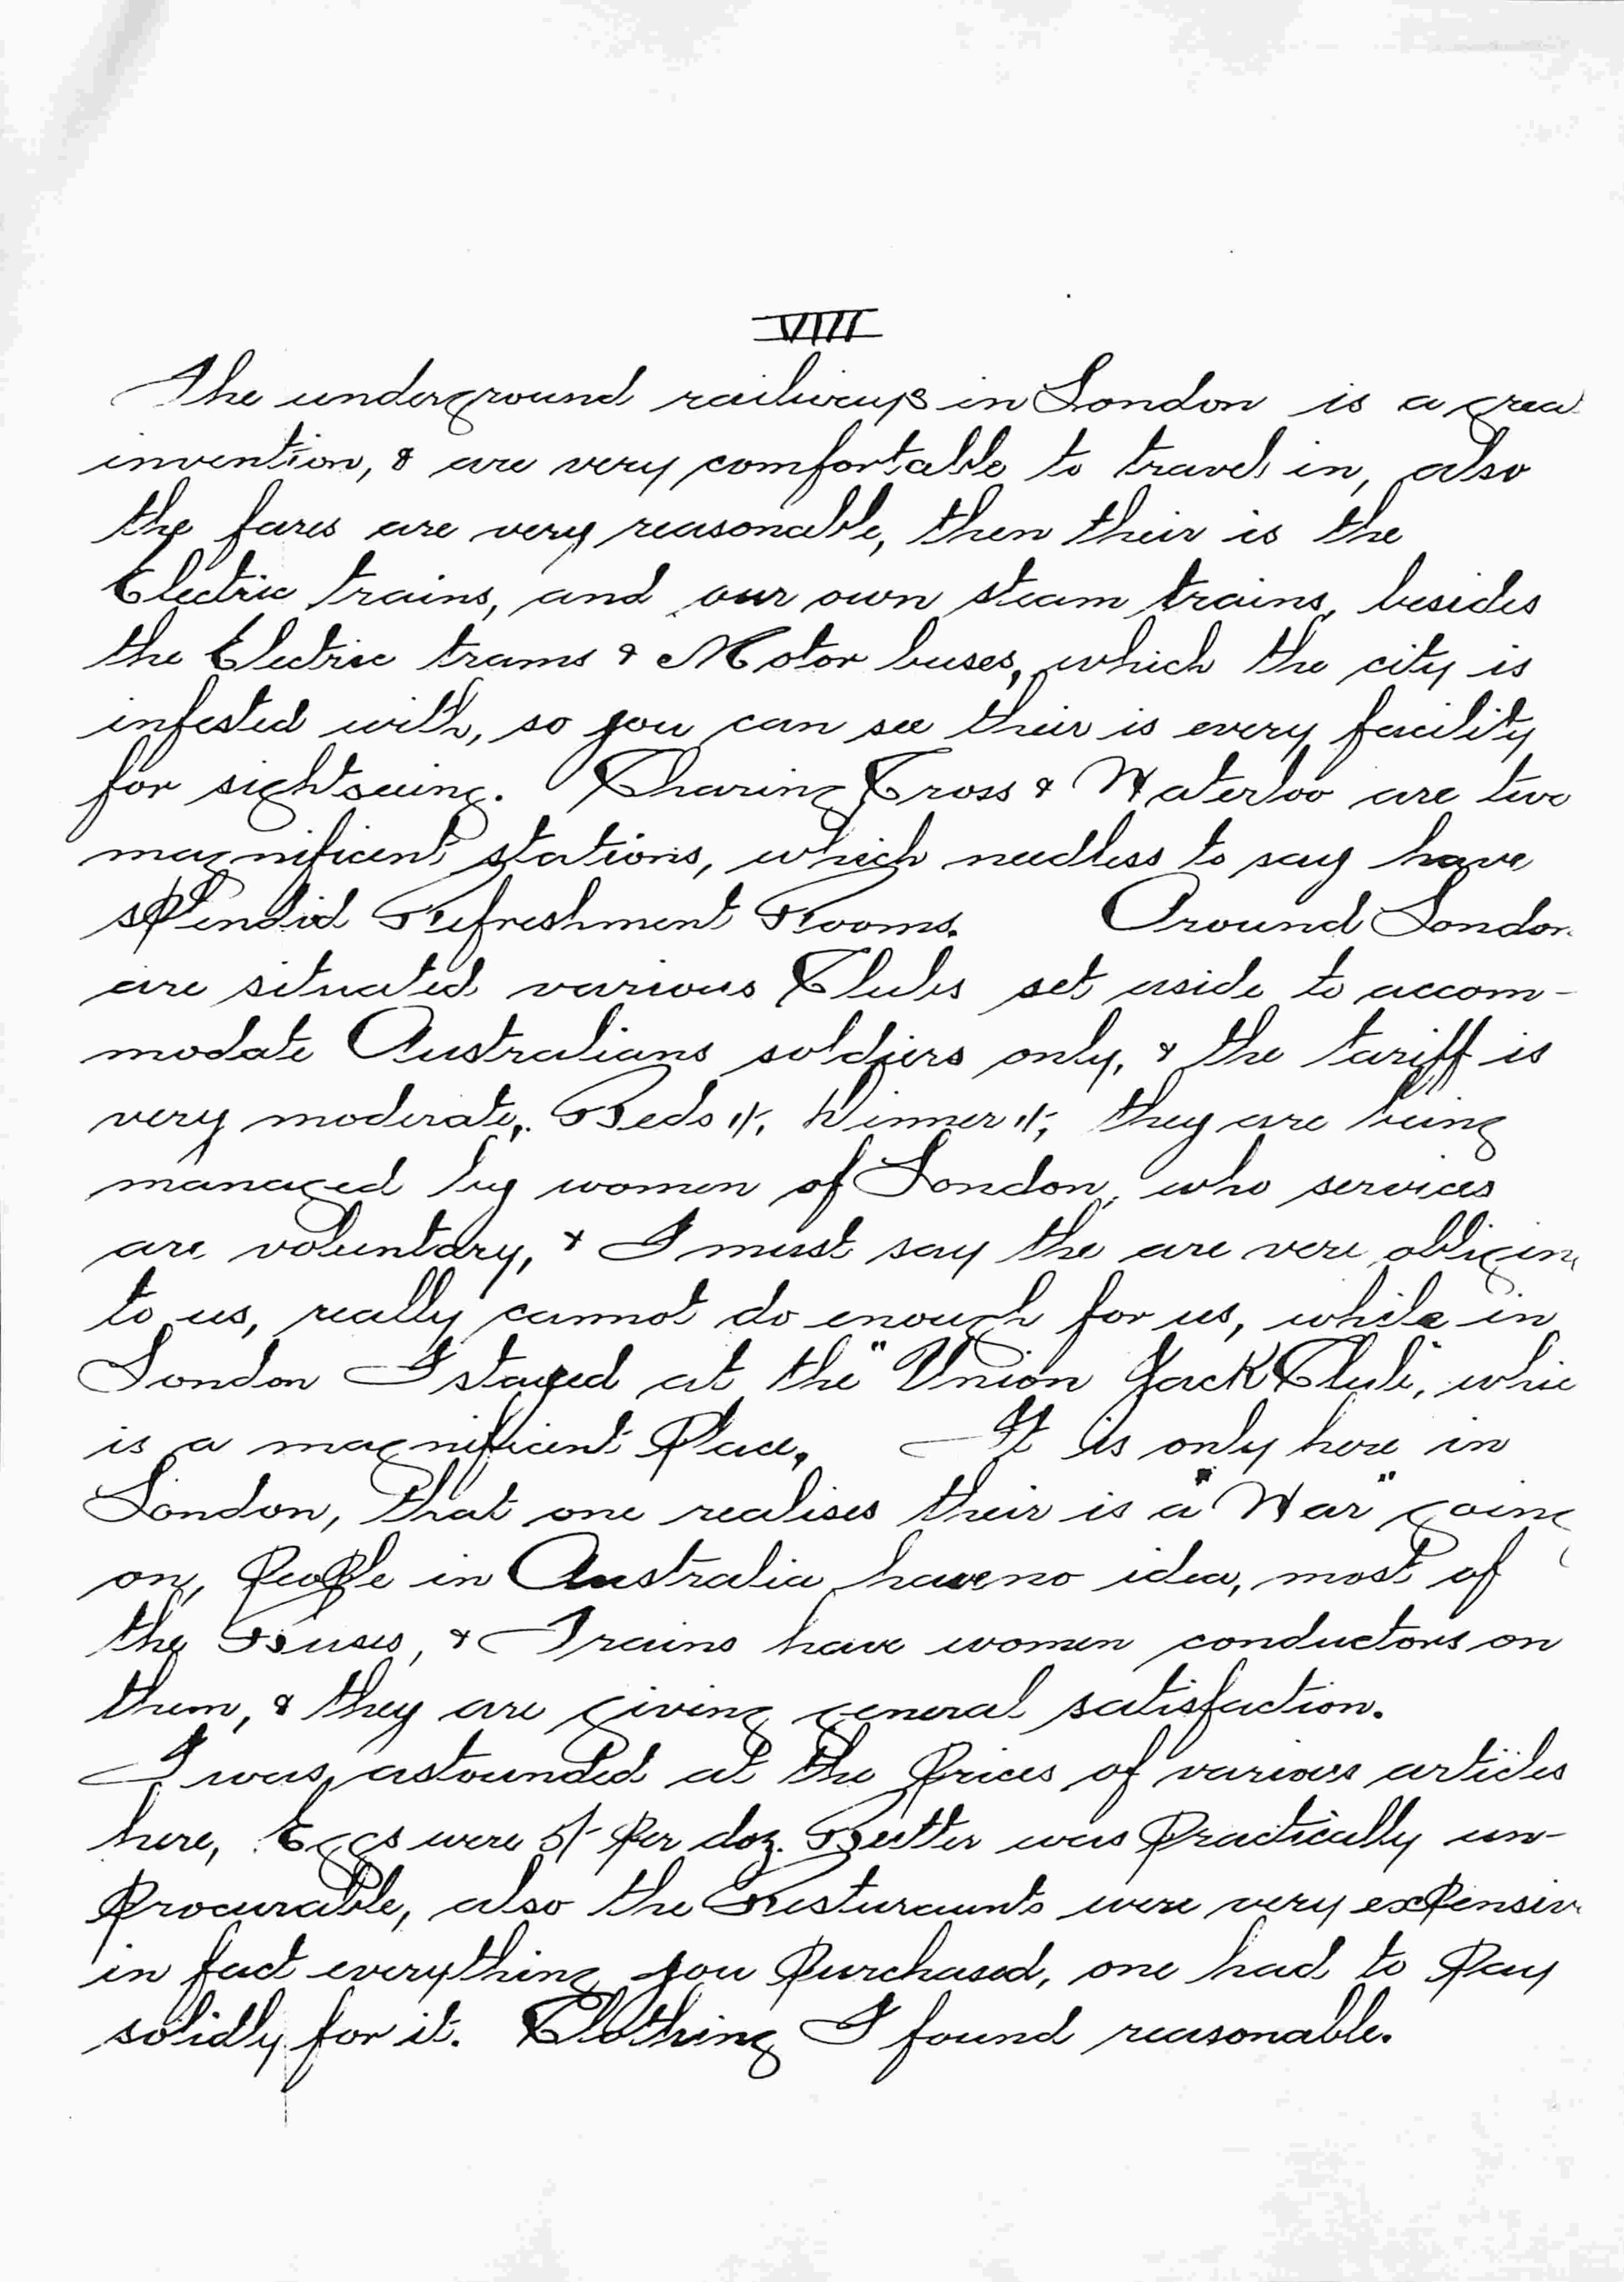 VIIII
The underground railways in London is a grea
invention, & are very comfortable to travel in, also
the fares are very reasonable, then their is the
Electric trains, and our own steam trains, besides
the Electric trams & Motor buses, which the city is
infested with, so you can see their is every facility
for sightseeing. Charing Cross & Waterloo are two
magnificent stations, which needless to say have
splendid Refreshment Rooms. Around London
are situated various Clubs set aside to accom-
modate Australians soldiers only, & the tariff is
very moderate,. Beds 1/-, Dinner 1/-, they are being
managed by women of London, who services
are voluntary, & I must say the are very obliging
to us, really cannot do enough for us, while in
London I stayed at the "Union Jack Club", whic
is a magnificent Place, It is only here in
London, that one realises their is a "War" going
on, People in Australia have no idea, most of
the Buses, & Trains have women conductors on
them, & they are giving general satisfaction.
I was, astounded at the Prices of various articles
here, Eggs were 5/- Per doz. Butter was Practically un-
Procurable, also the Resturaunts were very expensiv
in fact everything you Purchased, one had to Pay
solidly for it. Clothing I found reasonable.